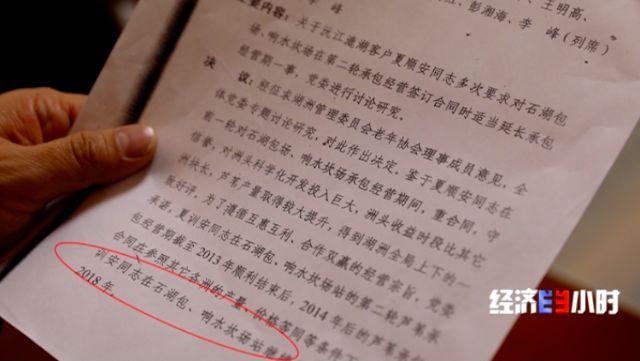 李 峰
王明高、
彭湘海、李 峰(列席)
主要内容：关于沅江漉湖客户夏顺安同志多次要求对石湖包
场、响水坎场在第二轮承包经营签订合同时适当延长承包
经营期一事，党委进行讨论研究。
决 议：经征求湖洲管理委员会老年协会理事成员意见，全
体党委专题讨论研究，对此作出决定。鉴于夏顺安同志在
第一轮对石湖包场、响水坎场承包经营期间，重合同，守
信誉，对洲头科学化开发投入巨大，洲头收益时段比其它
洲长，芦苇产量取得较大提升，得到湖洲全局上下的一
致好评，为了遵循互惠互利、合作双赢的经营宗旨，党委
承诺，夏训安同志在石湖包、响水坎场站的第二轮芦苇承
包经营期截至2013年顺利结束后，2014年后的芦苇承包
合同在参照其它各洲的产量、价格等同等条件下
训安同志在石湖包、响水坎场站继续
2018年。
经济半小时